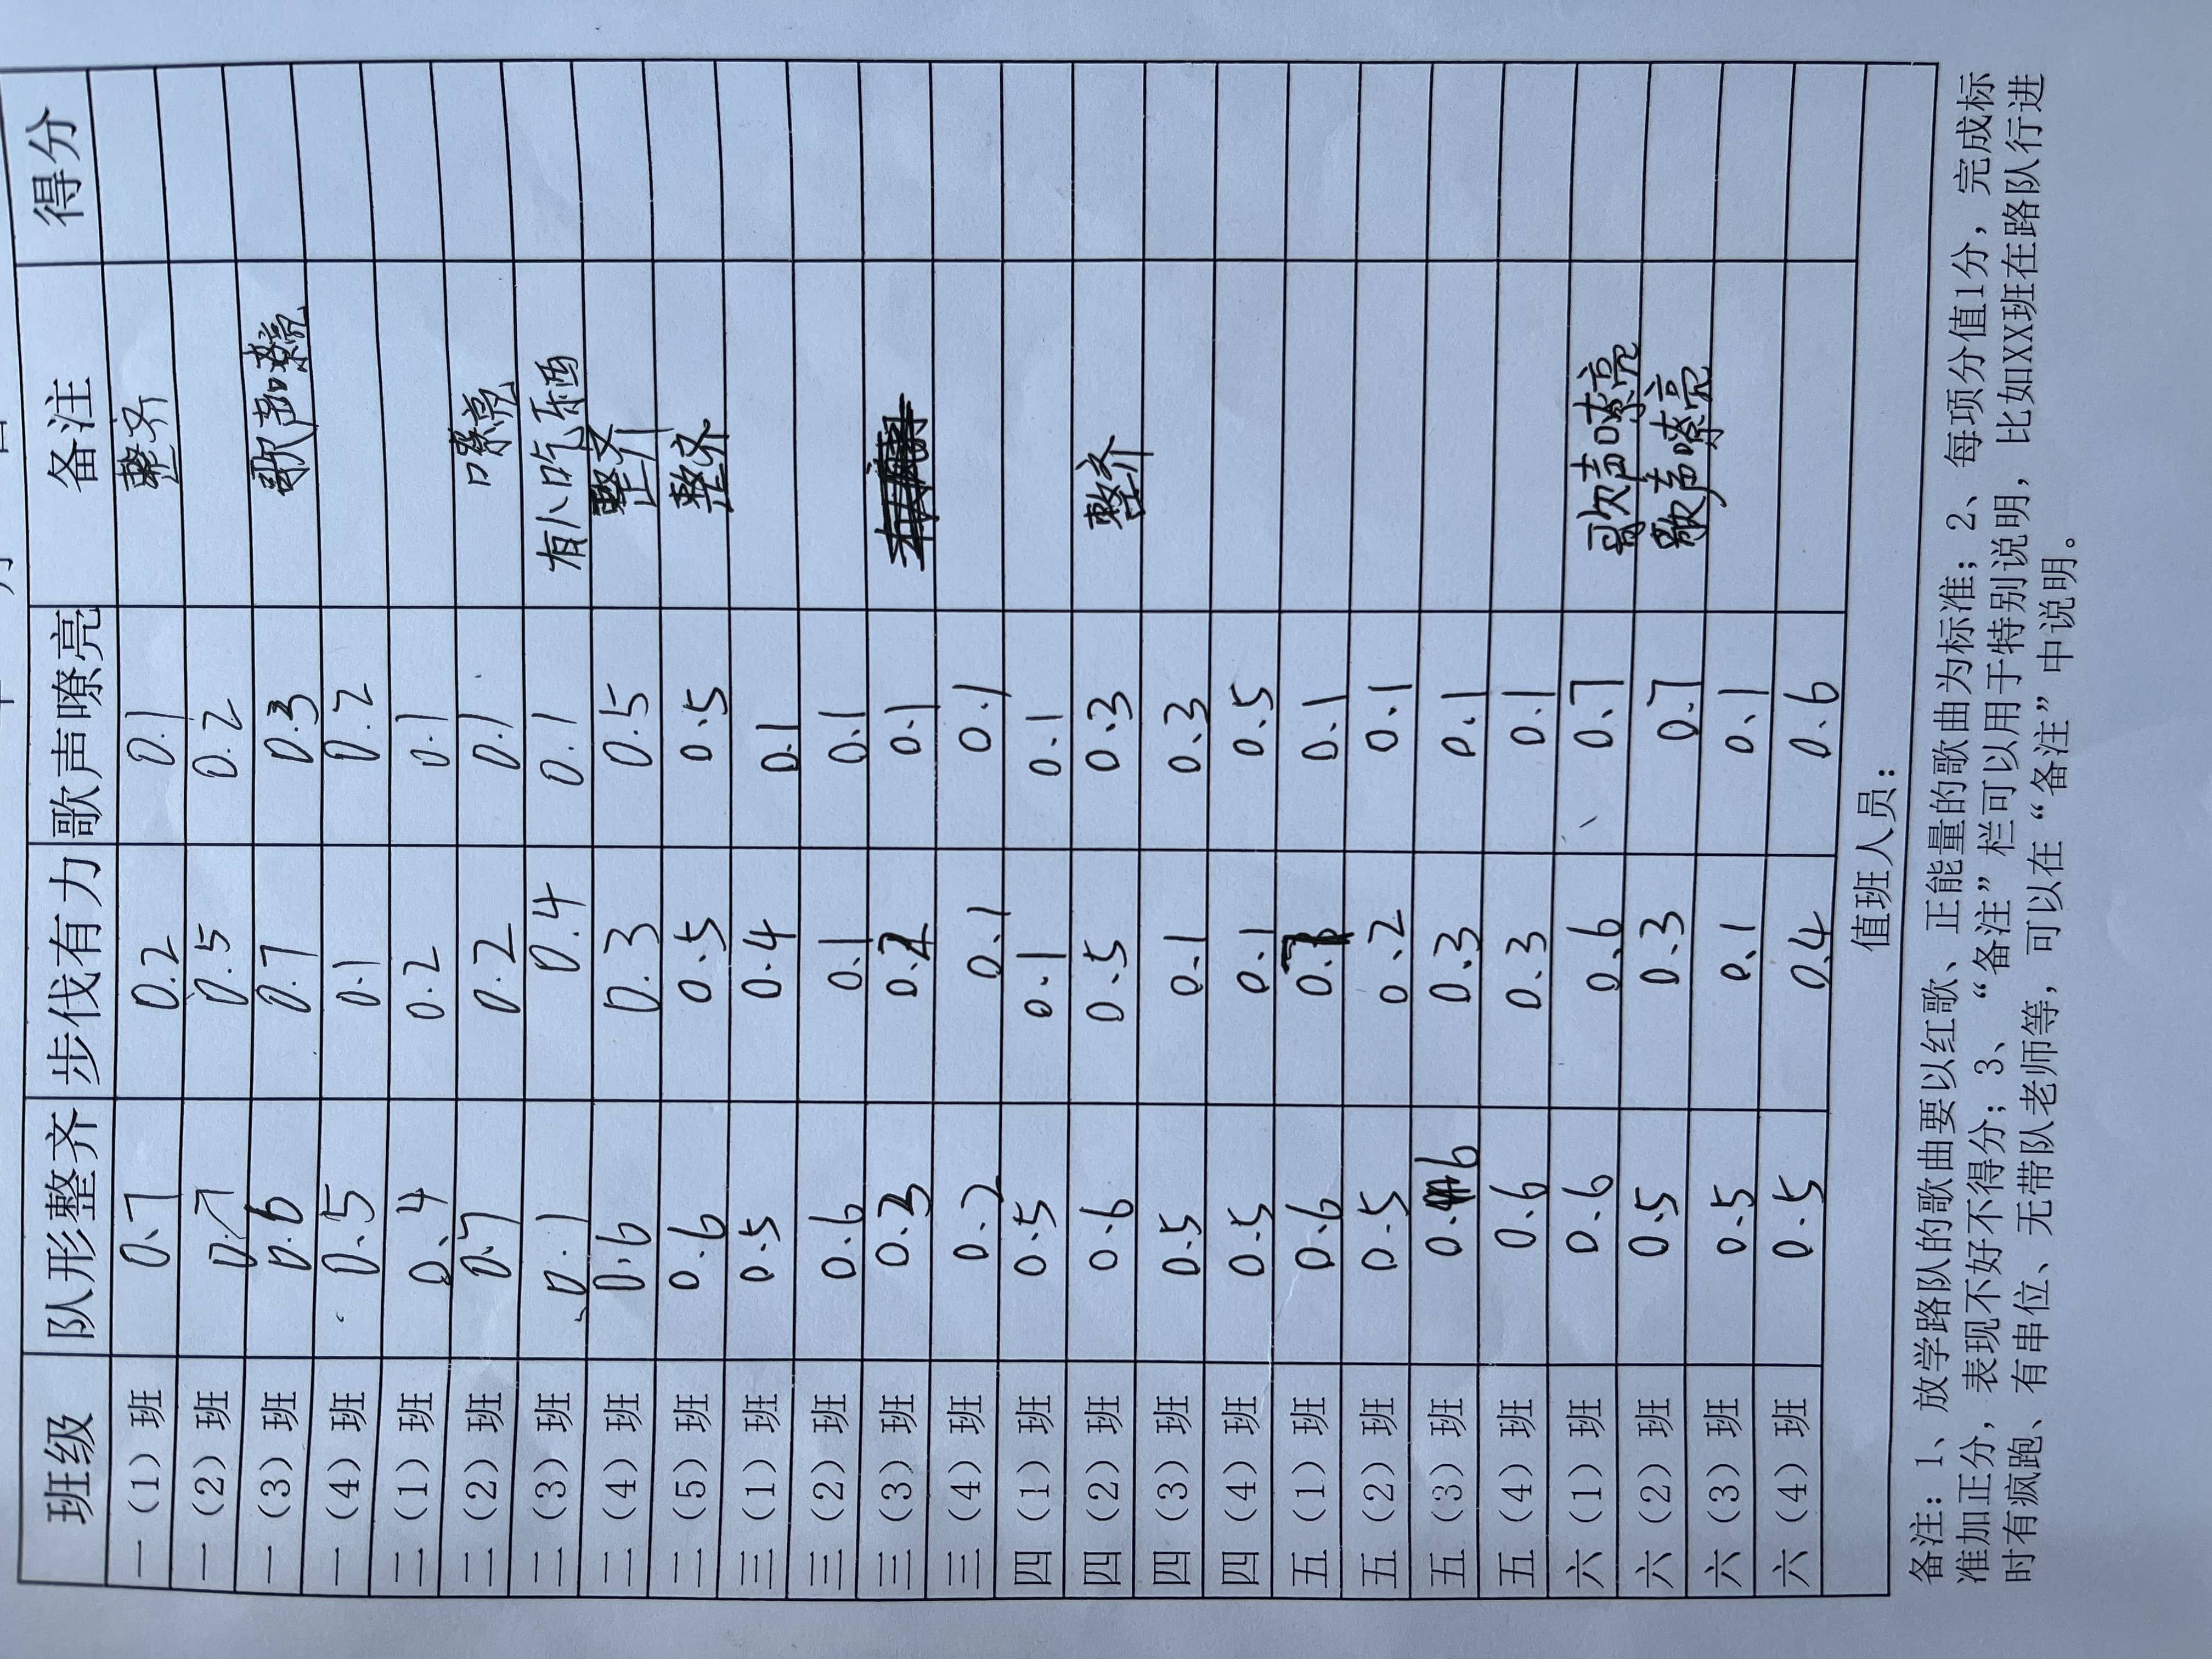 班级 队形整齐 步伐有力 歌声嘹亮 备注 得分
一（1）班 0.7 0.2 0.1 整齐
一（2）班 0.7 0.5 0.2
一（3）班 0.6 0.7 0.3 歌声嘹亮
一（4）班 0.5 0.1 0.2
二（1）班 0.4 0.2 0.1
二（2）班 0.7 0.2 0.1 口嘹亮
二（3）班 0.1 0.4 0.1 有人吃东西
二（4）班 0.6 0.3 0.5 整齐
二（5）班 0.6 0.5 0.5 整齐
三（1）班 0.5 0.4 0.1
三（2）班 0.6 0.1 0.1
三（3）班 0.3 0.2 0.1
三（4）班 0.2 0.1 0.1
四（1）班 0.5 0.1 0.1
四（2）班 0.6 0.5 0.3 整齐
四（3）班 0.5 0.1 0.3
四（4）班 0.5 0.1 0.5
五（1）班 0.6 0.1
五（2）班 0.5 0.2 0.1
五（3）班 0.6 0.3 0.1
五（4）班 0.6 0.3 0.1
六（1）班 0.6 0.6 0.7 歌声嘹亮
六（2）班 0.5 0.3 0.7 歌声嘹亮
六（3）班 0.5 0.1 0.1
六（4）班 0.5 0.4 0.6
值班人员：
备注：1、放学路队的歌曲要以红歌、正能量的歌曲为标准；2、每项分值1分，完成标
准加正分，表现不好不得分；3、“备注”栏可以用于特别说明，比如XX班在路队行进
时有疯跑、有串位、无带队老师等，可以在“备注”中说明。